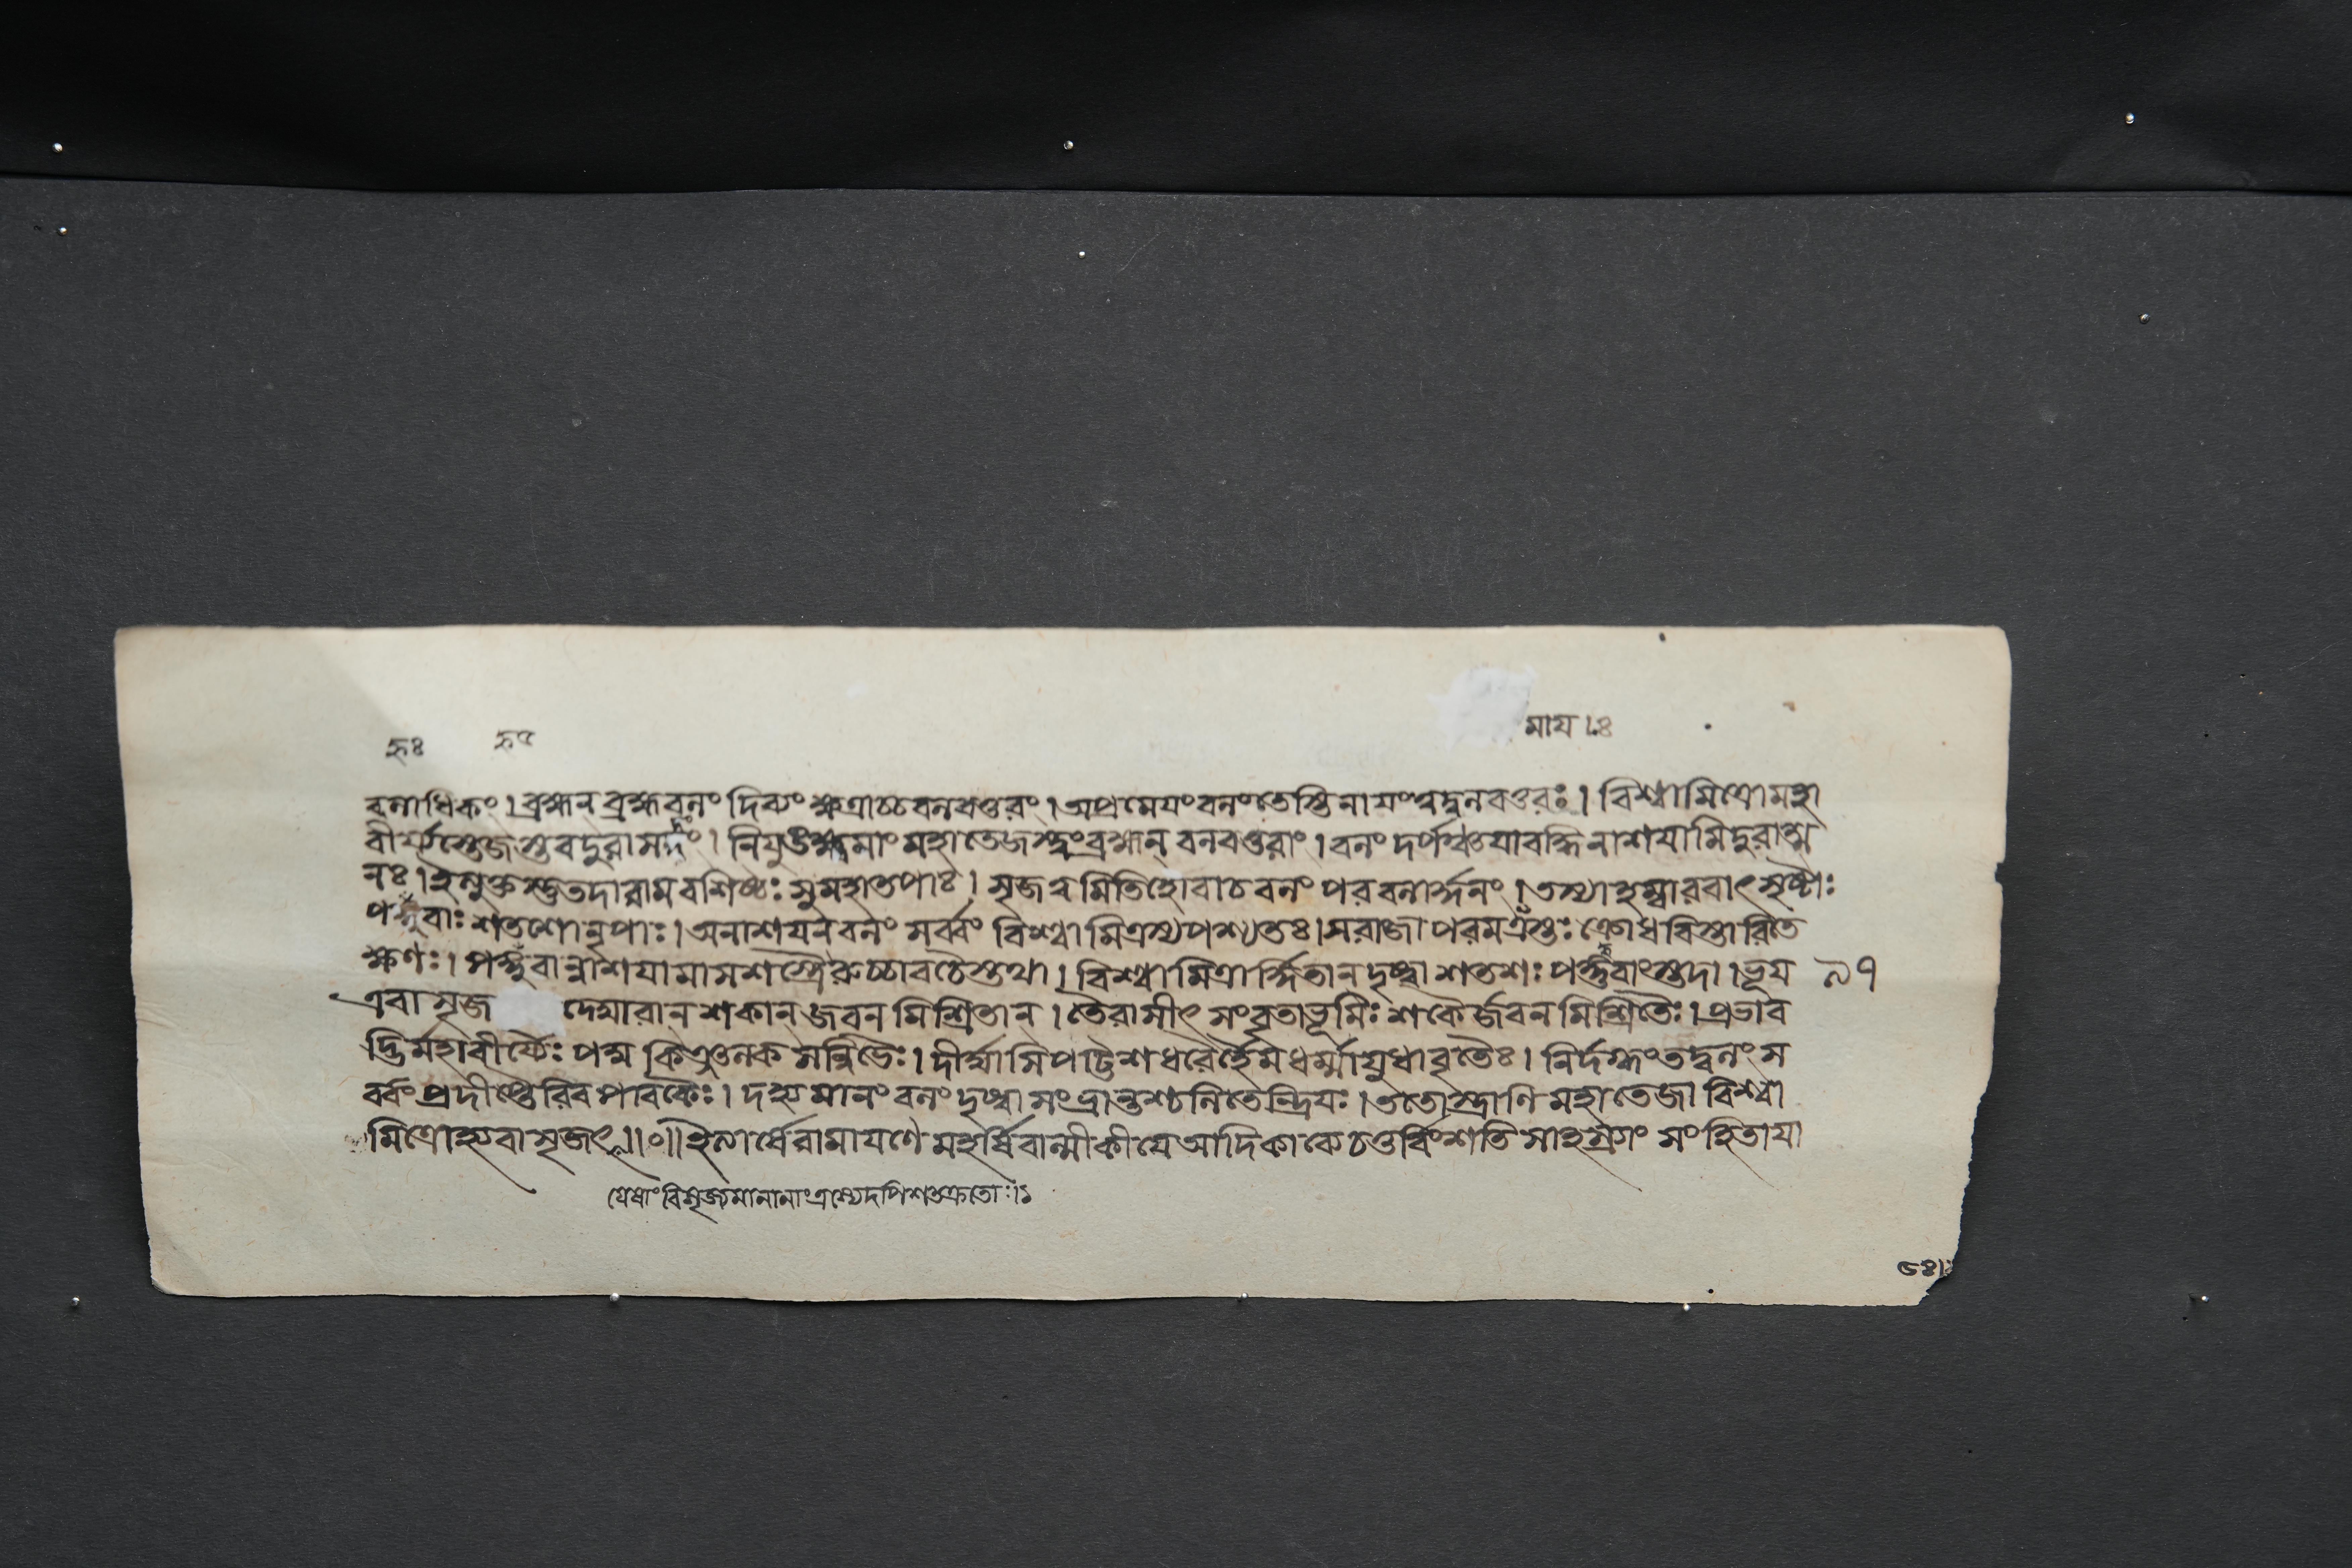 মায ।ঃ
বলাধিকং। ব্রহ্মন্ ব্রহ্মবলং দিব্যং ক্ষত্রাচ্চ বলবত্তরং। অপ্রমেযং বলং তেস্তি নাযং ত্বদ্বলবত্তরঃ। বিশ্বামিত্রো মহা
বীর্য্যস্তেজস্তব দুরাসদং। নিযুঙ্ক্ষ্ব মাং মহাতেজস্ত্বং ব্রহ্মন্ বলবত্তরাং। বলং দর্পঞ্চ যাবদ্ধি নাশযামি দুরাত্ম
নঃ। ইত্যুক্তস্তু তদা রাম বশিষ্ঠঃ সুমহাতপাঃ। সৃজ মিতি হোবাচ বলং পরবলার্দ্দনং। তস্যা হম্বারবাৎ সৃষ্টাঃ
পহ্নবাঃ শতশো নৃপাঃ। অনাশযন বলং সর্ব্বং বিশ্বামিত্রস্য পশ্যতঃ। স রাজা পরম ক্রোধ বিস্তারিতে
ক্ষণঃ। পহ্নবান্নাশযামাস শস্ত্রৈরুচ্চাবচৈস্তথা। বিশ্বামিত্রার্দ্দিতান্ দৃষ্ট্বা শতশঃ পহ্নবাংস্তদা। ভূয ৯৭
এবা সৃজ দেঘারান্ শকান্ জবন মিশ্রিতান্। তৈরাসীৎ সংবৃতা ভূমিঃ শকৈর্জবন মিশ্রিতৈঃ। প্রভাব
দ্ভির্মহাবীর্য্যৈঃ পদ্ম কিঞ্জল্ক সন্নিভৈঃ। দীর্ঘাসি পট্টিশ ধরৈর্হেম বর্ম্মাযুধাবৃতৈঃ। নির্দগ্ধং তদ্বলং স
র্ব্বং প্রদীপ্তৈরিব পাবকৈঃ। দহ্যমানং বলং দৃষ্ট্বা সংভ্রান্তশ্চলিতেন্দ্রিযঃ। ততোস্ত্রাণি মহাতেজা বিশ্বা
মিত্রোহ্যবা সৃজৎ॥০॥ ইত্যার্ষে রামাযণে মহর্ষি বাল্মীকীযে আদিকাব্যে চতুর্বিংশতি সাহস্র্যাং সংহিতাযা
যেষাং বিসৃজ্যমানানাং ত্রস্যেদপি শতক্রতোঃ।১